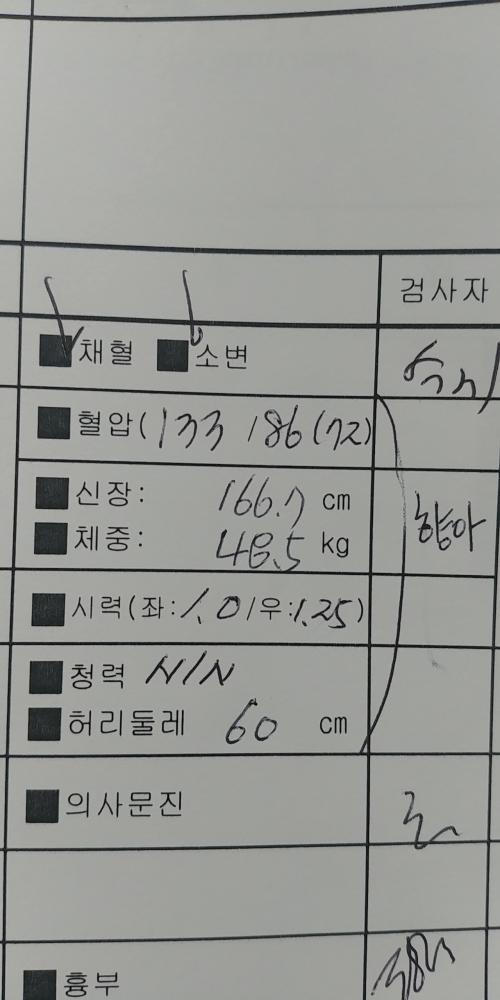 검사자
■채혈 ■소변
■혈압(133 /86(72)
■신장: 166.7 cm
■체중: 48.5 kg
향아
■시력(좌:1.0/우:1.25)
■청력 N/N
■허리둘레 60 cm
■의사문진
■흉부